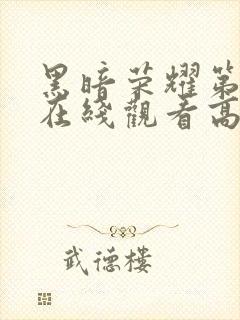 黑暗荣耀第
在线觀看高
武德樓